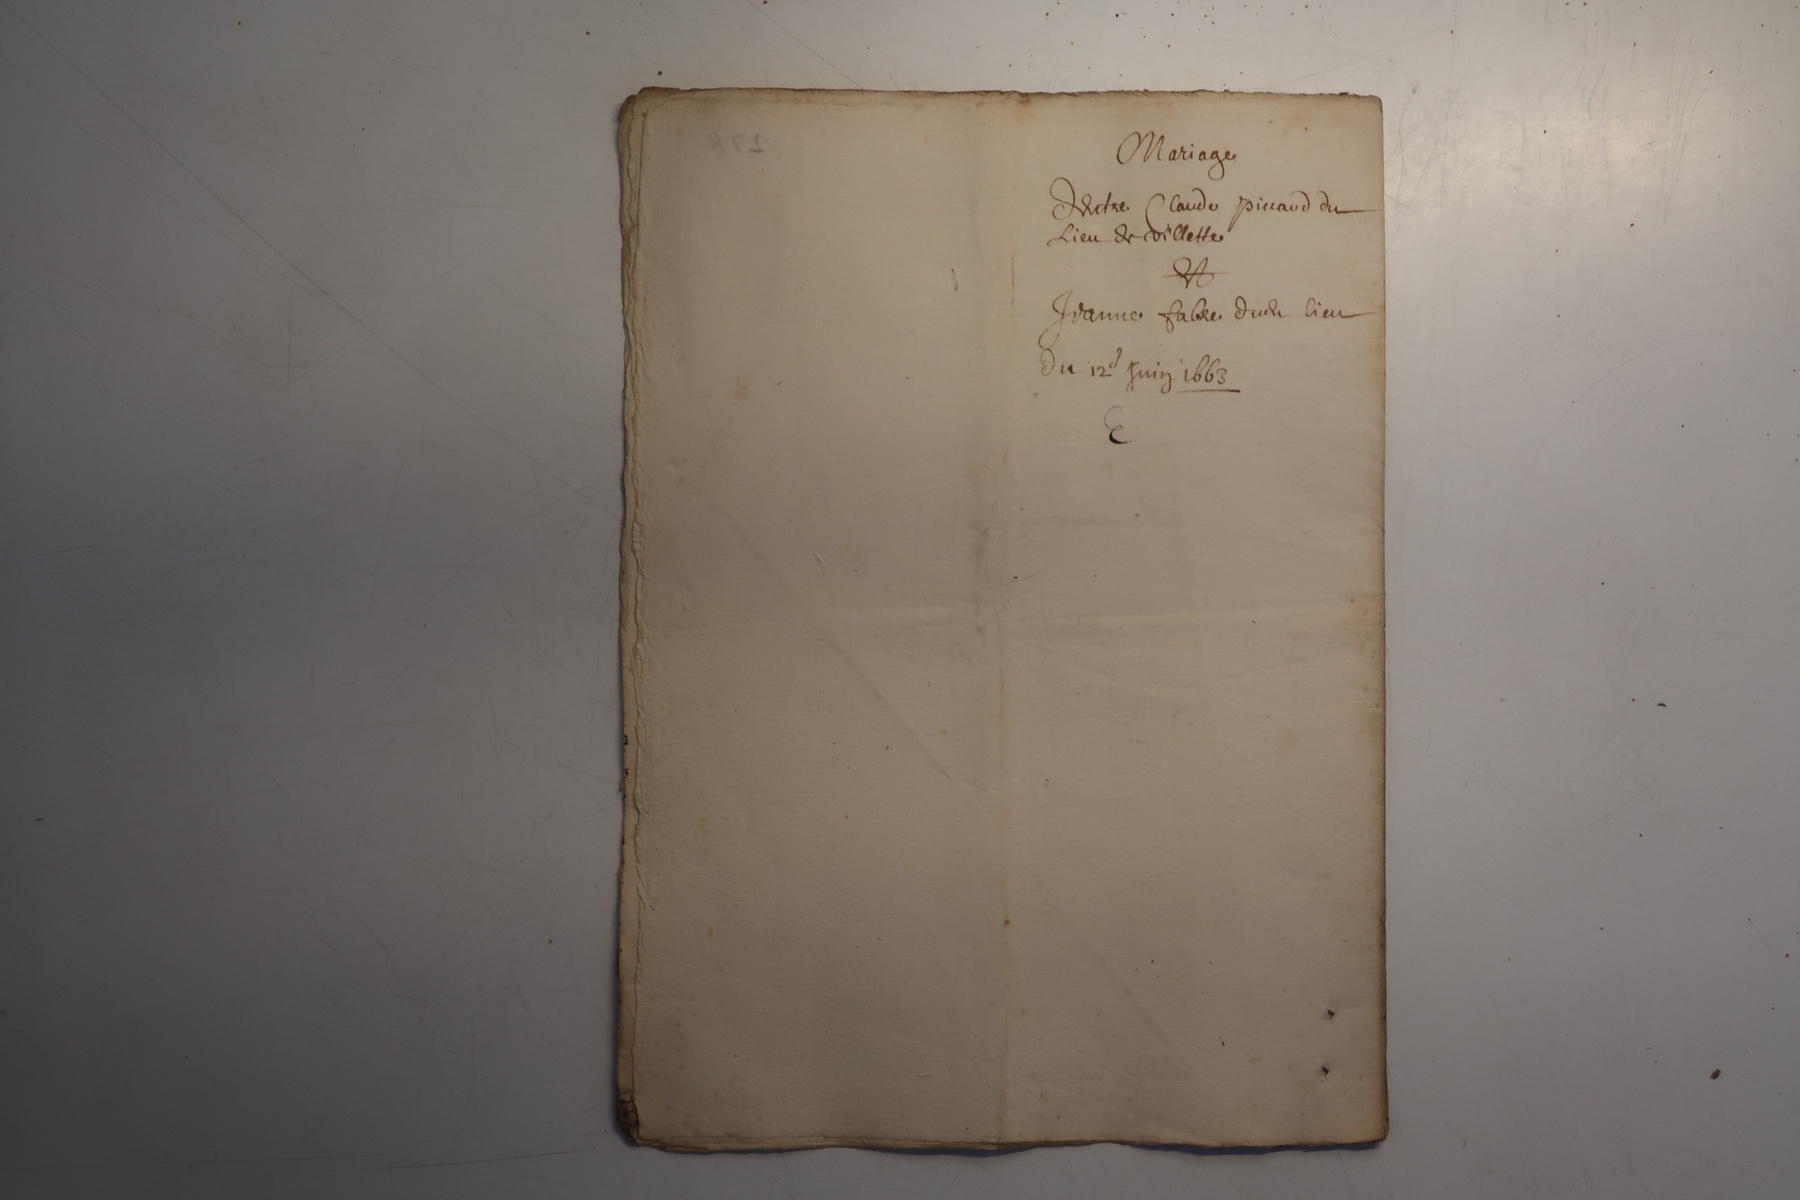 Mariage
Entre Claude picaud du
Lieu de villette
Et
Jeanne fabre dudt lieu
Du 12e Juin 1663